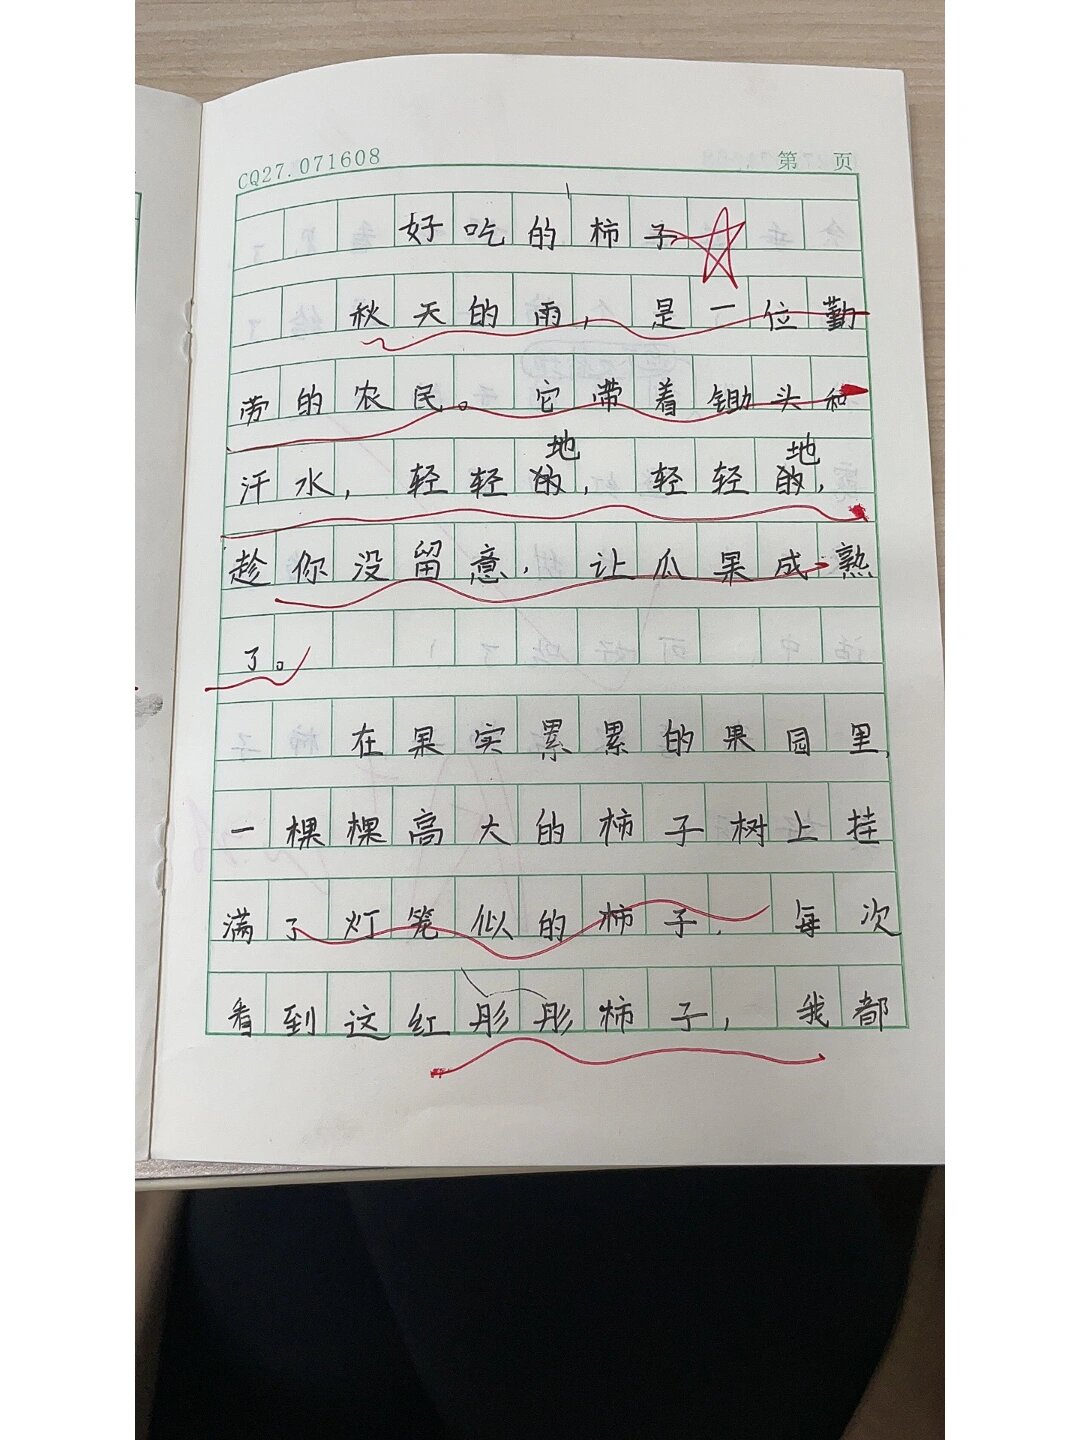 CQ27.071608 第 页
好吃的柿子
秋天的雨，是一位勤
劳的农民。它带着锄头和
地 地
汗水，轻轻的，轻轻的，
趁你没留意，让瓜果成熟
了。
在果实累累的果园里，
一棵棵高大的柿子树上挂
满了灯笼似的柿子，每次
看到这红彤彤柿子，我都